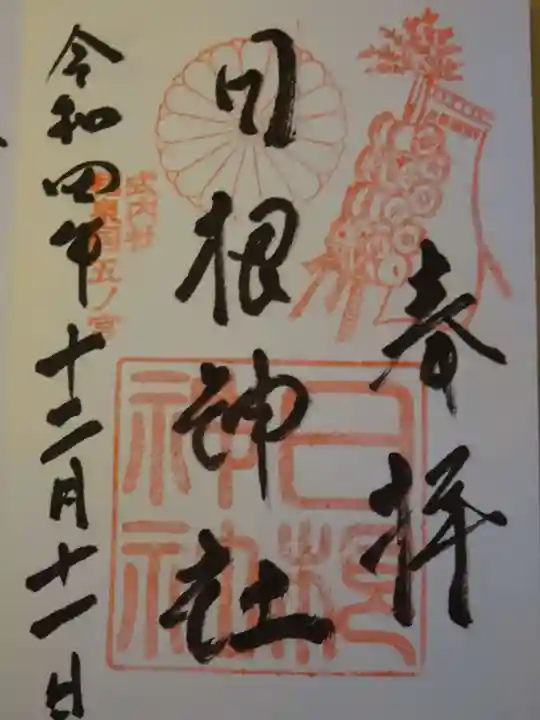 奉拝
日根神社
式内社
和泉国五ノ宮
令和四年十二月十一日
日根
神社